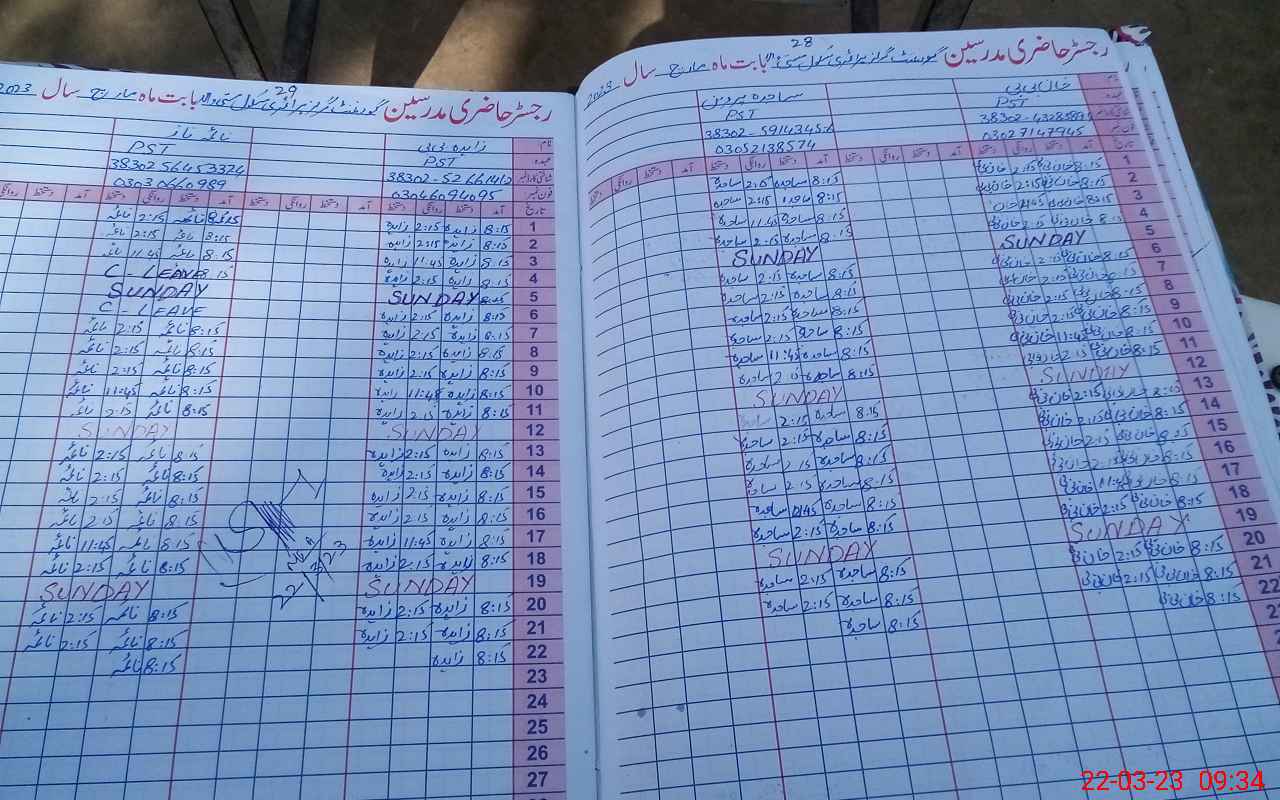 28
رجسٹر حاضری مدرسین گورنمنٹ گرلز پرائمری سکول بستی بابت ماہ مارچ سال 2023
نام خان بی بی ساجدہ پروین
عہدہ PST PST
شناختی کارڈ نمبر
فون نمبر 03027147945 03052138574
تاریخ آمد دستخط روانگی دستخط آمد دستخط روانگی دستخط آمد دستخط روانگی دستخط
1 8:15 خان بی بی 2:15 خان بی بی 8:15 ساجدہ 2:15 ساجدہ
2 8:15 خان بی بی 2:15 خان بی بی 8:15 ساجدہ 2:15 ساجدہ
3 8:15 خان بی بی 11:45 خان بی بی 8:15 ساجدہ 11:45 ساجدہ
4 8:15 خان بی بی 2:15 خان بی بی 8:15 ساجدہ 2:15 ساجدہ
5 SUNDAY SUNDAY
6 8:15 خان بی بی 2:15 خان بی بی 8:15 ساجدہ 2:15 ساجدہ
7 8:15 خان بی بی 2:15 خان بی بی 8:15 ساجدہ 2:15 ساجدہ
8 8:15 خان بی بی 2:15 خان بی بی 8:15 ساجدہ 2:15 ساجدہ
9 8:15 خان بی بی 2:15 خان بی بی 8:15 ساجدہ 2:15 ساجدہ
10 8:15 خان بی بی 11:45 خان بی بی 8:15 ساجدہ 11:45 ساجدہ
11 8:15 خان بی بی 2:15 خان بی بی 8:15 ساجدہ 2:15 ساجدہ
12 SUNDAY SUNDAY
13 8:15 خان بی بی 2:15 خان بی بی 8:15 ساجدہ 2:15 ساجدہ
14 8:15 خان بی بی 2:15 خان بی بی 8:15 ساجدہ 2:15 ساجدہ
15 8:15 خان بی بی 2:15 خان بی بی 8:15 ساجدہ 2:15 ساجدہ
16 8:15 خان بی بی 2:15 خان بی بی 8:15 ساجدہ 2:15 ساجدہ
17 8:15 خان بی بی 11:45 خان بی بی 8:15 ساجدہ ساجدہ
18 8:15 خان بی بی 2:15 خان بی بی 8:15 ساجدہ 2:15 ساجدہ
19 SUNDAY SUNDAY
20 8:15 خان بی بی 2:15 خان بی بی 8:15 ساجدہ 2:15 ساجدہ
21 8:15 خان بی بی 2:15 خان بی بی 8:15 ساجدہ 2:15 ساجدہ
22 8:15 خان بی بی 8:15 ساجدہ
29
رجسٹر حاضری مدرسین گورنمنٹ گرلز پرائمری سکول بستی بابت ماہ مارچ سال 2023
نام زاہدہ بی بی نائمہ ناز
عہدہ PST PST
شناختی کارڈ نمبر 38302-56453324
فون نمبر 03046094095 03030660989
تاریخ آمد دستخط روانگی دستخط آمد دستخط روانگی دستخط آمد دستخط
1 8:15 زاہدہ 2:15 زاہدہ 8:15 نائمہ 2:15 نائمہ
2 8:15 زاہدہ 2:15 زاہدہ 8:15 نائمہ 2:15 نائمہ
3 8:15 زاہدہ 11:45 زاہدہ 8:15 نائمہ 11:45 نائمہ
4 8:15 زاہدہ 2:15 زاہدہ 8:15 C-LEAVE
5 8:15 SUNDAY SUNDAY
6 8:15 زاہدہ 2:15 زاہدہ C-LEAVE
7 8:15 زاہدہ 2:15 زاہدہ 8:15 نائمہ 2:15 نائمہ
8 8:15 زاہدہ 2:15 زاہدہ 8:15 نائمہ 2:15 نائمہ
9 8:15 زاہدہ 2:15 زاہدہ 8:15 نائمہ 2:15 نائمہ
10 8:15 زاہدہ 11:45 زاہدہ 8:15 نائمہ 11:45 نائمہ
11 8:15 زاہدہ 2:15 زاہدہ 8:15 نائمہ 2:15 نائمہ
12 SUNDAY SUNDAY
13 8:15 زاہدہ 2:15 زاہدہ 8:15 نائمہ 2:15 نائمہ
14 8:15 زاہدہ 2:15 زاہدہ 8:15 نائمہ 2:15 نائمہ
15 8:15 زاہدہ 2:15 زاہدہ 8:15 نائمہ 2:15 نائمہ
16 8:15 زاہدہ 2:15 زاہدہ 8:15 نائمہ 2:15 نائمہ
17 8:15 زاہدہ 11:45 زاہدہ 8:15 نائمہ 11:45 نائمہ
18 8:15 زاہدہ 2:15 زاہدہ 8:15 نائمہ 2:15 نائمہ
19 SUNDAY SUNDAY
20 8:15 زاہدہ 2:15 زاہدہ 8:15 نائمہ 2:15 نائمہ
21 8:15 زاہدہ 2:15 زاہدہ 8:15 نائمہ 2:15 نائمہ
22 8:15 زاہدہ 8:15 نائمہ
23
24
25
26
27
22-03-23 09:34